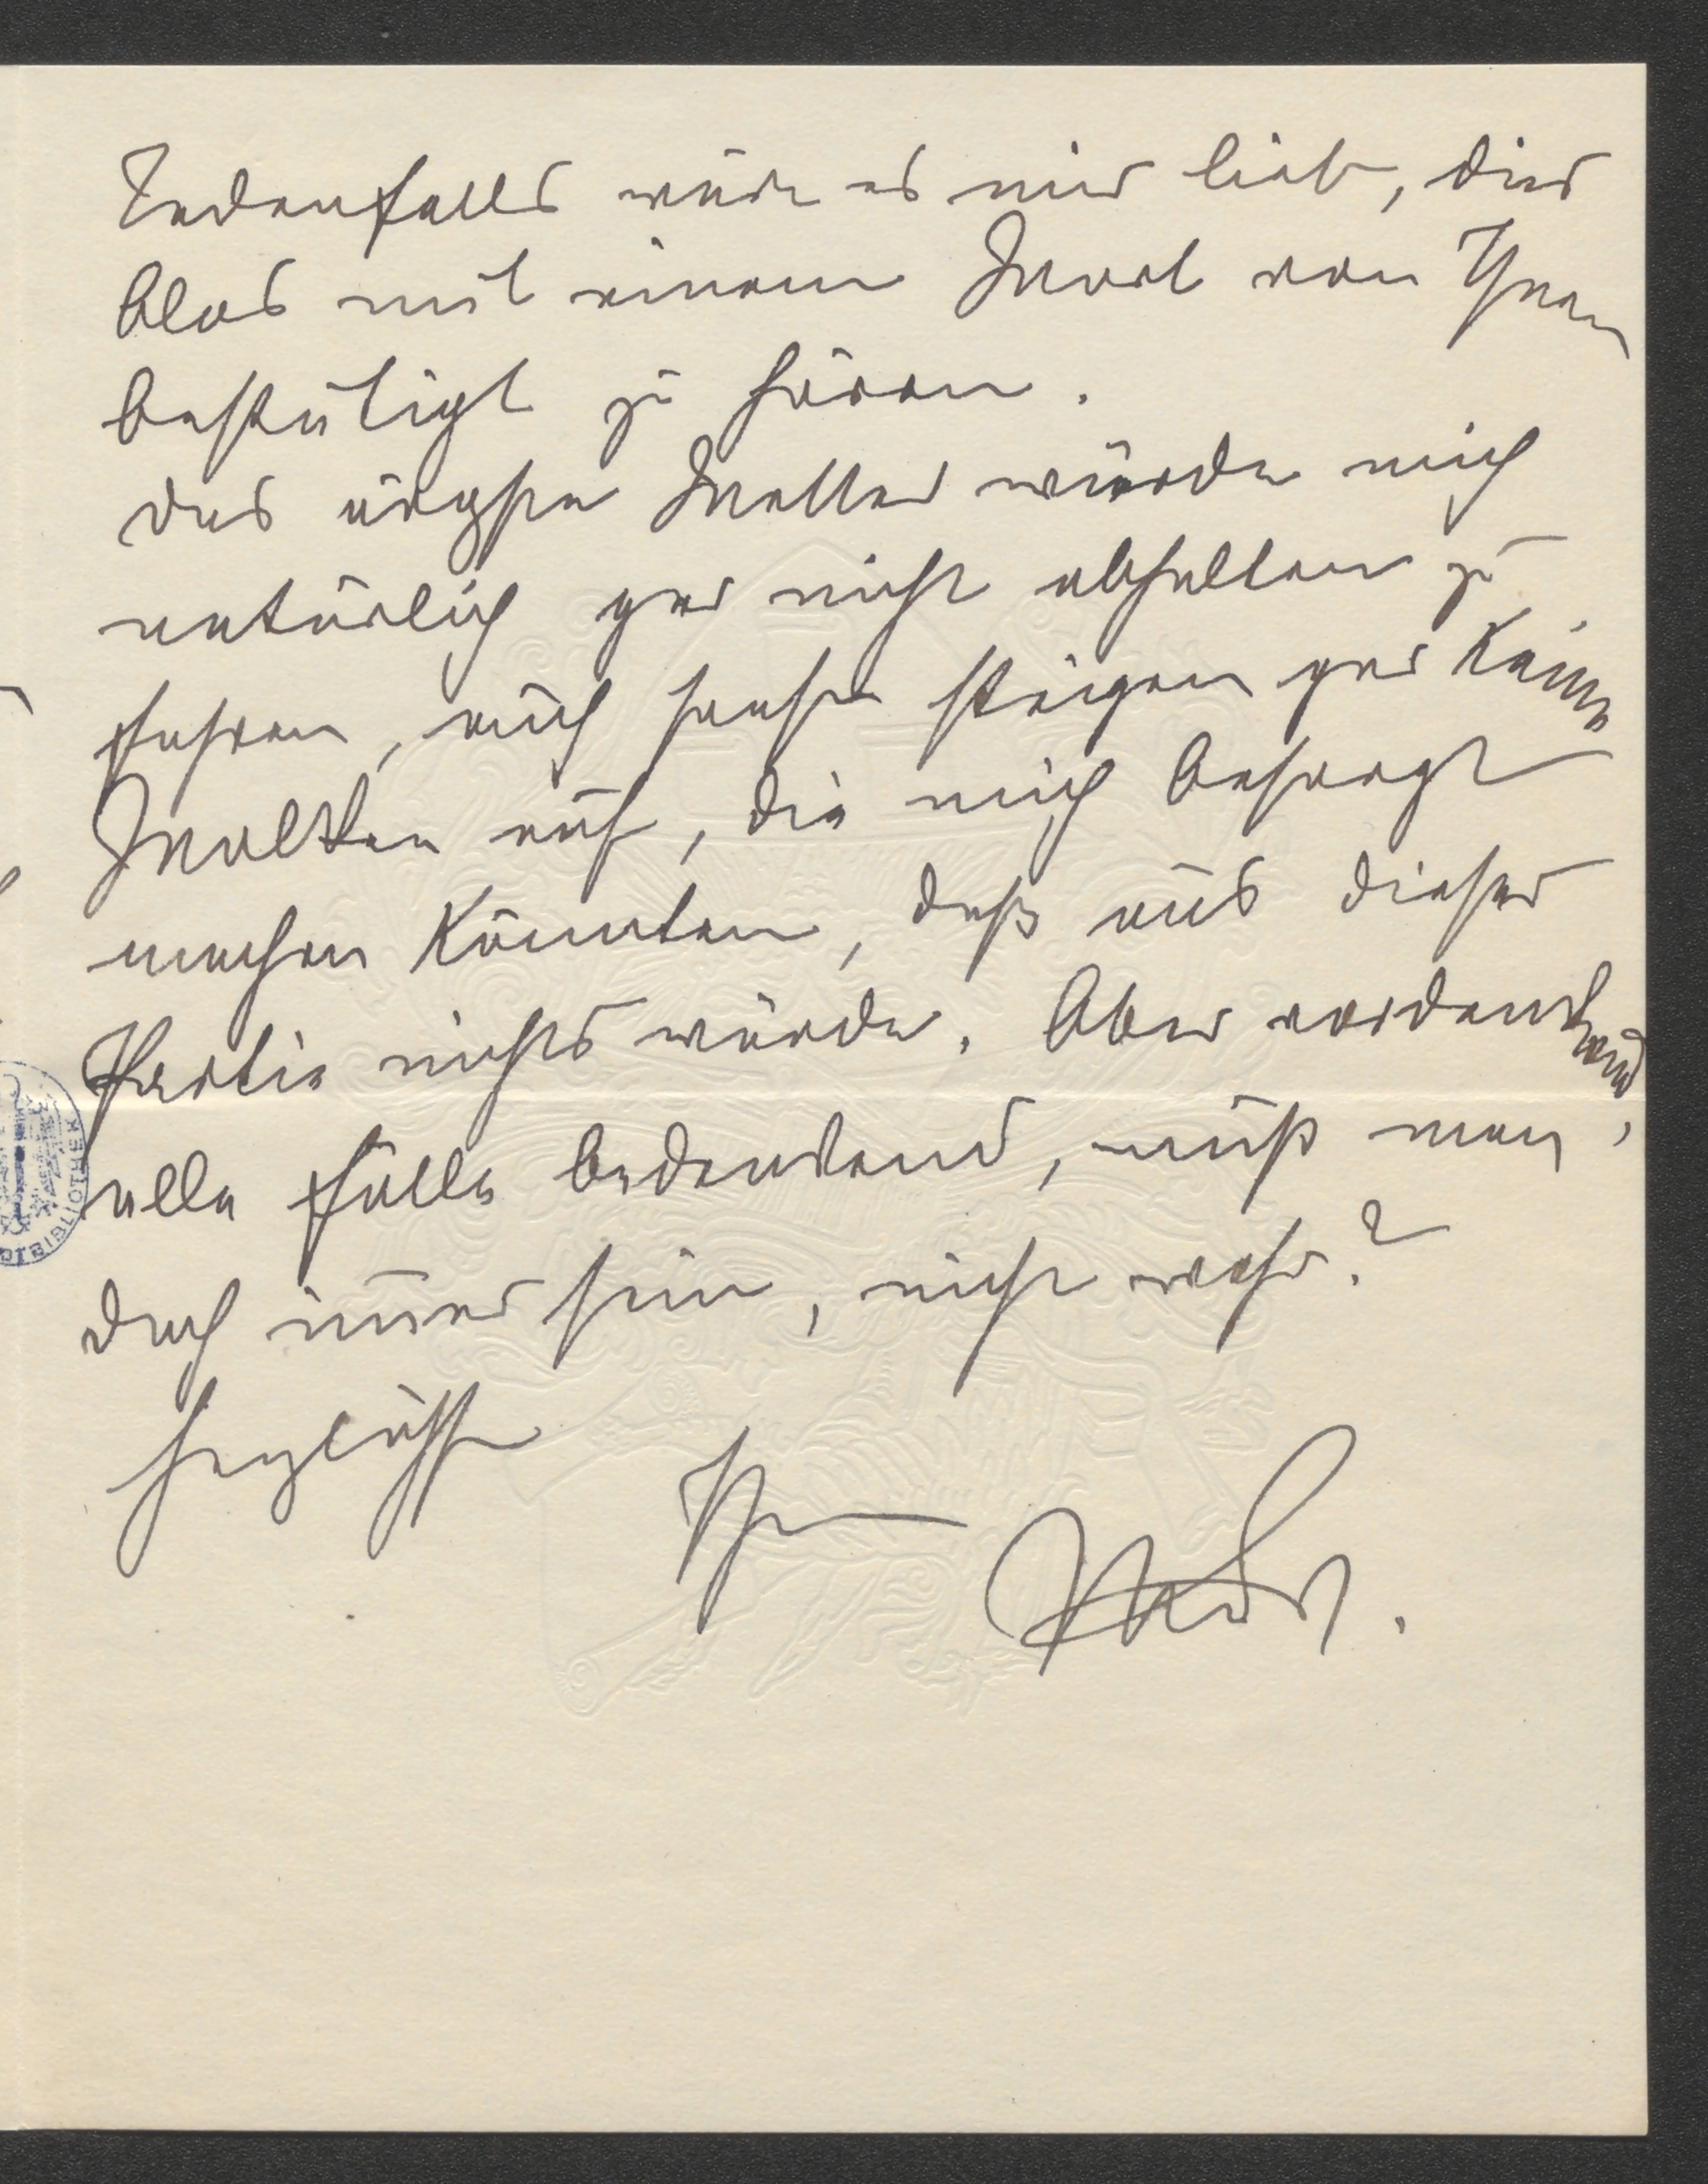 Jedenfalls wäre es mir lieb, dies
blos mit einem Wort von Ihnen
bestätigt zu hören.
Das ärgste Wetter würde mich
natürlich gar nicht abhalten zu
fahren, auch sonst steigen gar keine
Wolken auf, die mich besorgt
machen könnten, daß aus dieser
Partie nichts würde. Aber vordenkend,
alle Fälle bedenkend, muß man
doch im̄er sein, nicht wahr?
Herzlichst
Ihr
BIBLIOTHEK